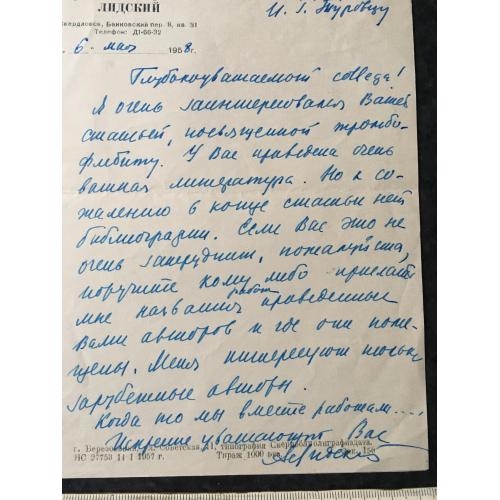 ЛИДСКИЙ
Свердловск, Банковский пер. 8, кв. 31
Телефон: Д1-66-32
И. Г. Туровцу
6. мая 1958 г.
Глубокоуважаемый collega!
Я очень заинтересовался Вашей
статьей, посвященной тромбо-
флебиту. У Вас приведена очень
важная литература. Но к со-
жалению в конце статьи нет
библиографии. Если Вас это не
очень затруднит, пожалуйста,
поручите кому либо прислать
мне названия работ приведенных
Вами авторов и где они поме-
щены. Меня интересуют только
зарубежные авторы.
Когда то мы вместе работали....,
Искренне уважающий Вас
АЛидский
г. Березовский, ул. Советская 41, типография Свердполиграфиздата.
НС 27753 14 I 1957 г. Тираж 1000 150